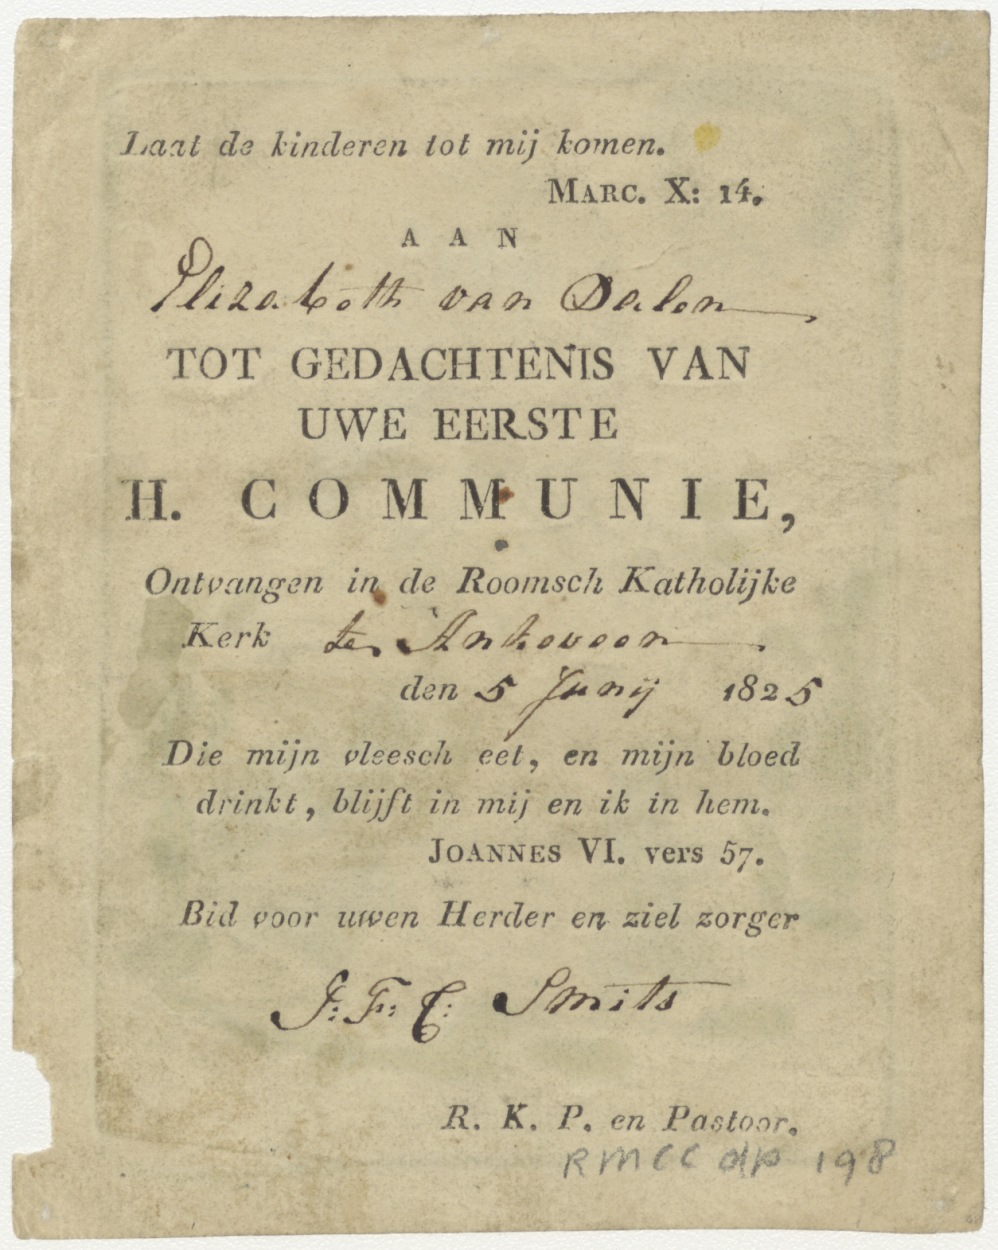 Laat de kinderen tot mij komen.
MARC. X: 14.
AAN
Elizabeth van Dalen
TOT GEDACHTENIS VAN
UWE EERSTE
H. COMMUNIE,
Ontvangen in de Roomsch Katholijke
Kerk te Ankeveen
den 5 Junij 1825
Die mijn vleesch eet, en mijn bloed
drinkt, blijft in mij en ik in hem.
JOANNES VI. vers 57.
Bid voor uwen Herder en ziel zorger
J: F: C: Smits
R. K. P. en Pastoor.
RMCC dp 198